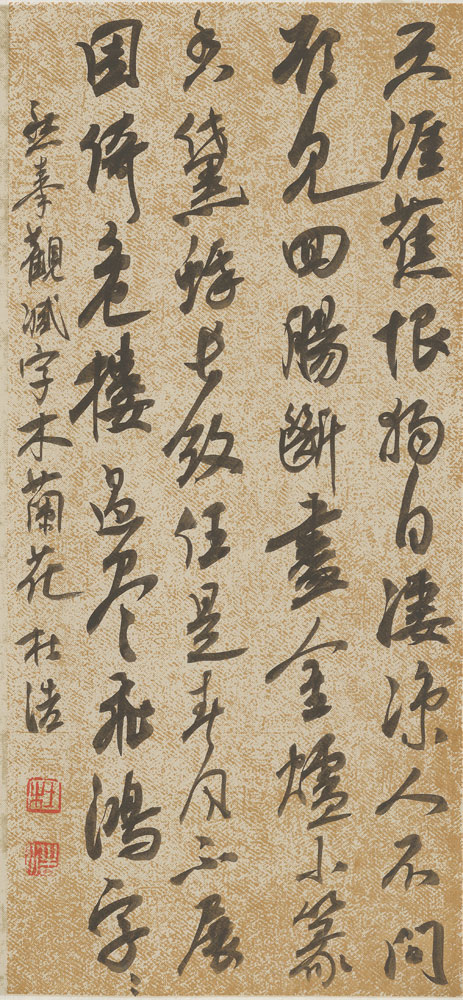 天涯舊恨獨自淒涼人不問
欲見回腸斷盡金爐小篆
香黛蛾長斂任是春風不展
困倚危樓過盡飛鴻字〻
秦觀減字木蘭花 杜浩
杜